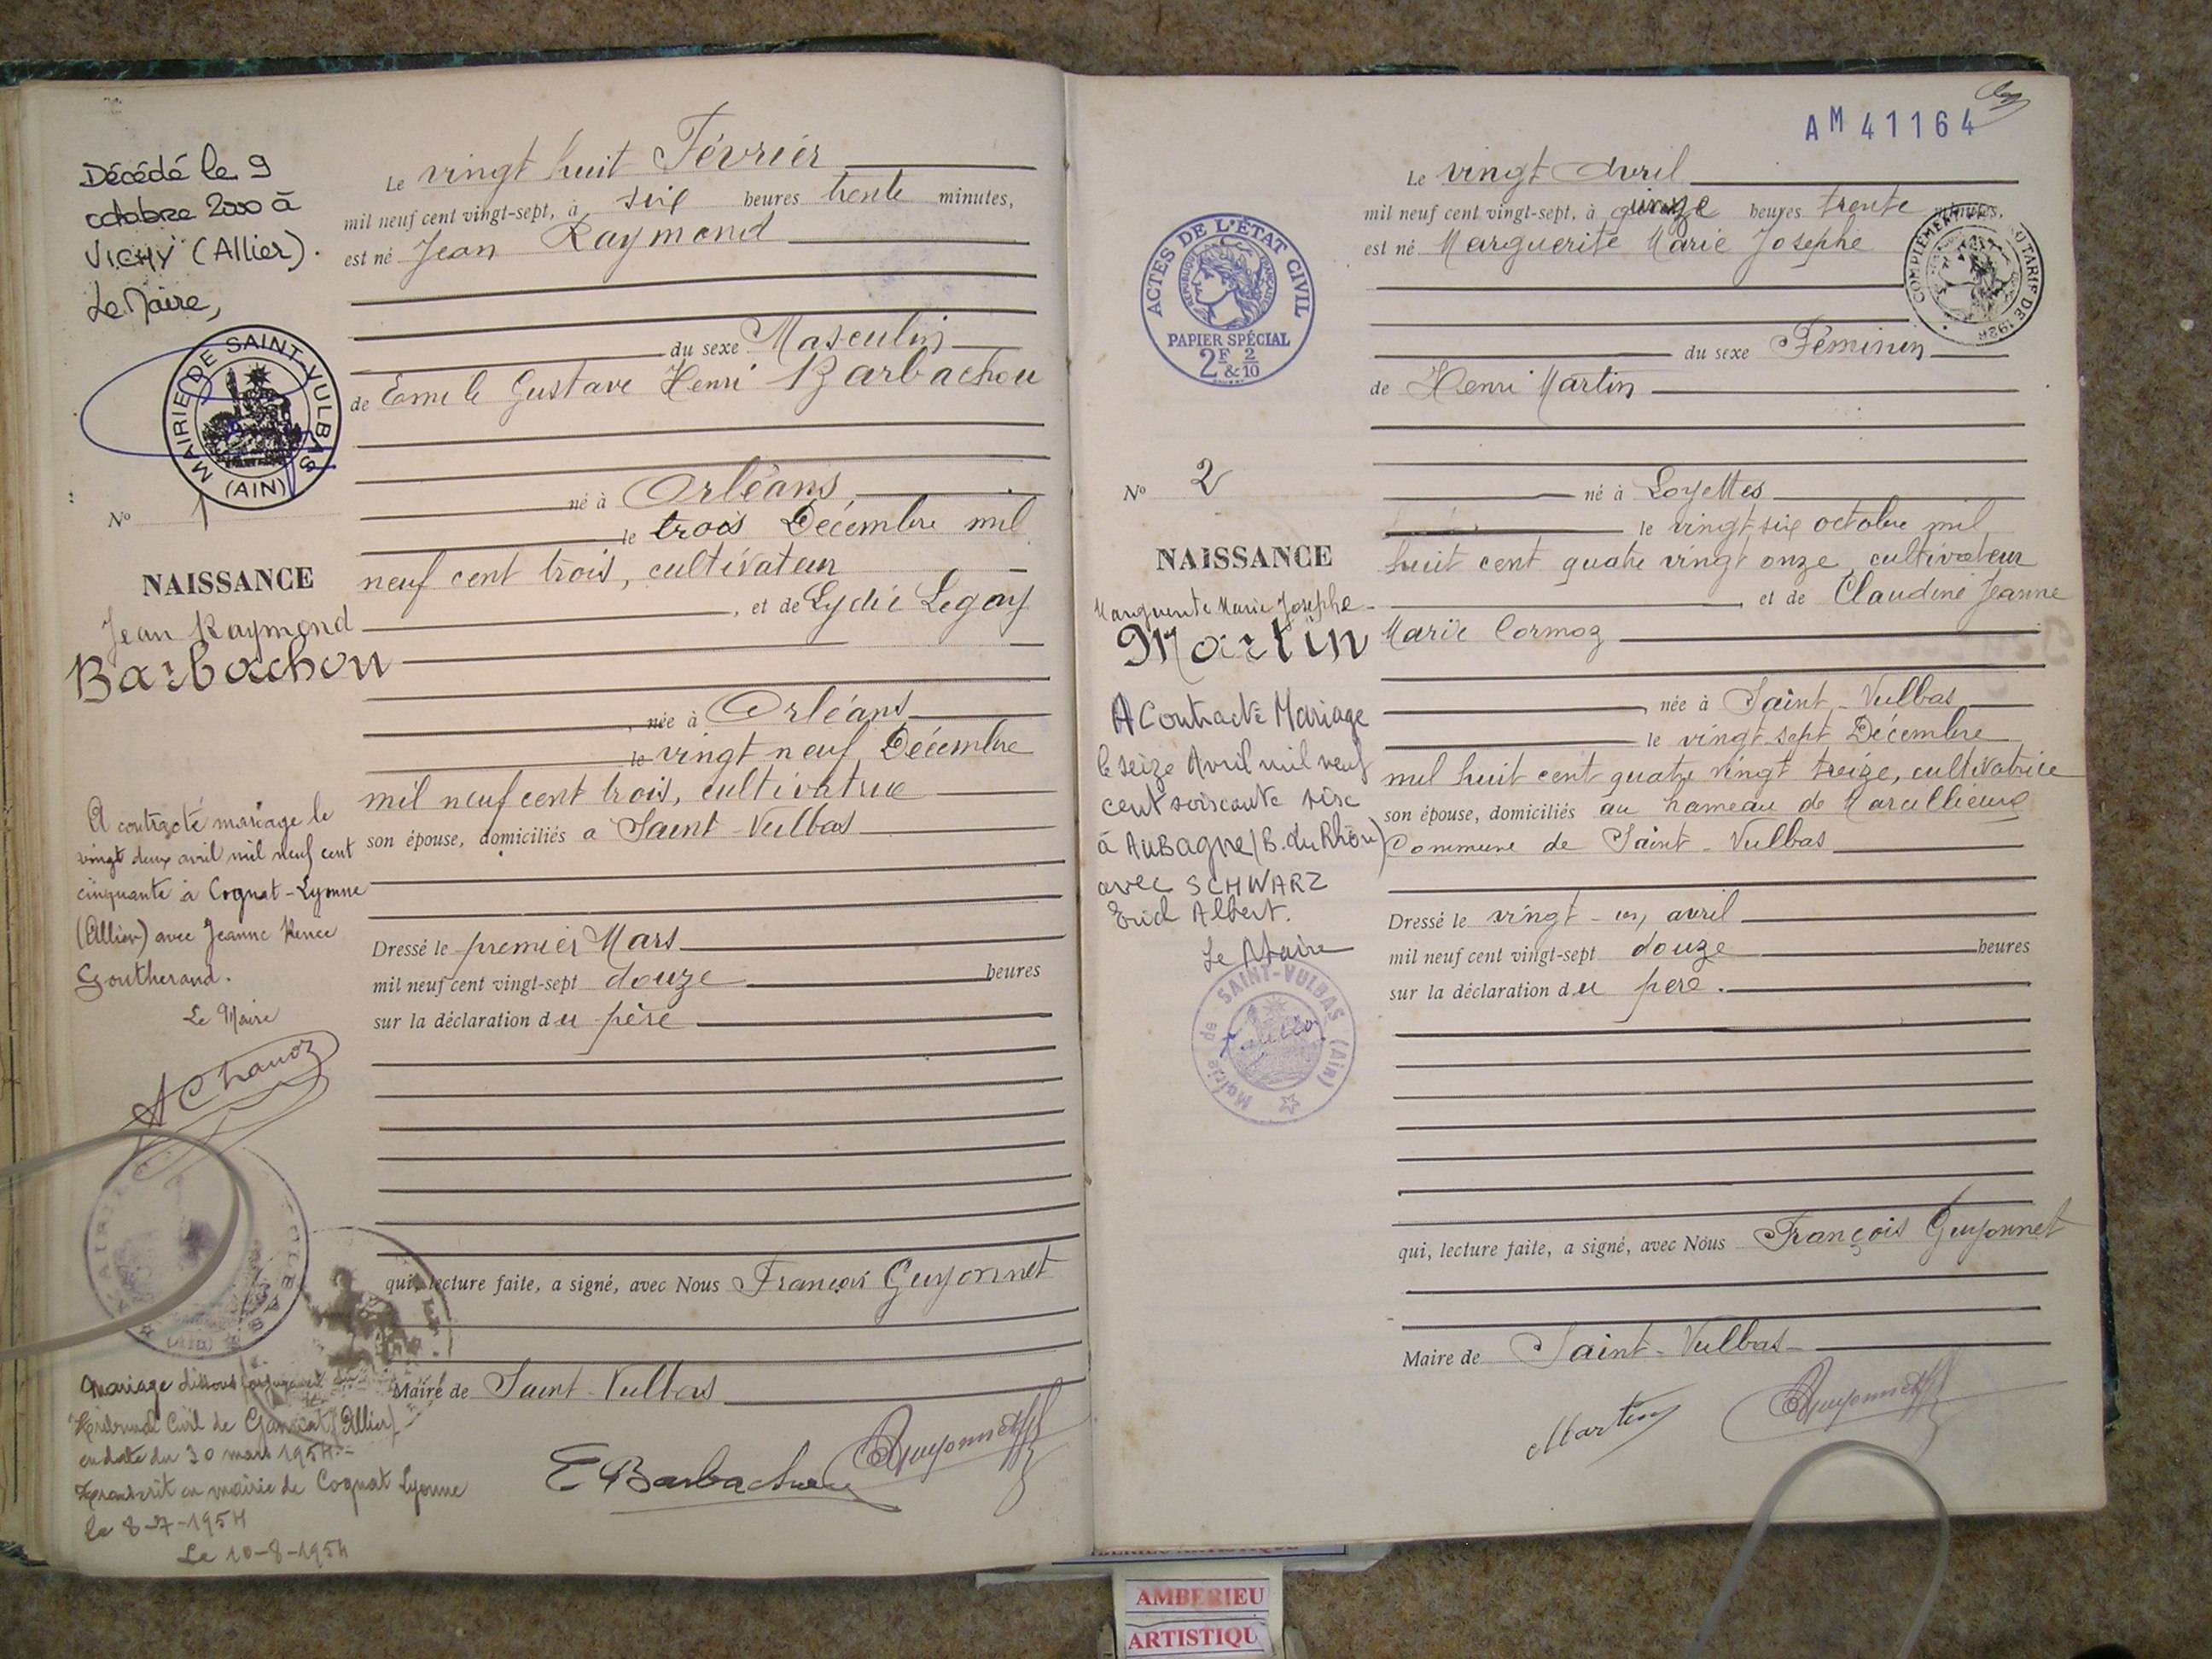 Décédé le 9
octobre 2000 à
VICHY (Allier).
Le Maire,
MAIRIE DE SAINT-VULBAS
(AIN)
No 1
NAISSANCE
Jean Raymond
Barbachou
A contracté mariage le
vingt deux avril mil neuf cent
cinquante à Cognat-Lyonne
(Allier) avec Jeanne Renée
Goutherand.
Le Maire
A Chanoz
Mariage dissous
Tribunal Civil de Gannat (Allier)
en date du 30 mars 1954.-
Transcrit en mairie de Cognat Lyonne
le 8-7-1954
Le 10-8-1954
Le vingt huit Février
mil neuf cent vingt-sept, à six heures trente minutes,
est né Jean Raymond
du sexe Masculin
de Emile Gustave Henri Barbachou
né à Orléans
le trois Décembre mil
neuf cent trois, cultivateur
, et de Lydie Legay
, née à Orléans
le vingt neuf Décembre
mil neuf cent trois, cultivatrice
son épouse, domiciliés a Saint-Vulbas
Dressé le premier Mars
mil neuf cent vingt-sept douze heures
sur la déclaration du père
qui, lecture faite, a signé, avec Nous François Guyonnet
Maire de Saint-Vulbas
E Barbachou
Guyonnet
AM 41164
ACTES DE L'ÉTAT CIVIL
RÉPUBLIQUE FRANÇAISE
PAPIER SPÉCIAL
2F & 2/10
No 2
NAISSANCE
Marguerite Marie Josephe
Martin
A Contracté Mariage
le seize Avril mil neuf
cent soixante six
à AuBagne (B. du Rhône)
avec SCHWARZ
Erich Albert.
Le Maire
Mairie de SAINT-VULBAS (Ain)
Le vingt avril
mil neuf cent vingt-sept, à quinze heures trente minutes,
est né Marguerite Marie Josephe
COMPLÉMENT DU TARIF DE
du sexe Féminin
de Henri Martin
né à Loyettes
le vingt six octobre mil
huit cent quatre vingt onze, cultivateur
, et de Claudine Jeanne
Marie Cormoz
, née à Saint-Vulbas
le vingt-sept Décembre
mil huit cent quatre vingt treize, cultivatrice
son épouse, domiciliés au hameau de Marcillieux
Commune de Saint-Vulbas
Dressé le vingt-un avril
mil neuf cent vingt-sept douze heures
sur la déclaration du père.
qui, lecture faite, a signé, avec Nous François Guyonnet
Maire de Saint-Vulbas
Martin
Guyonnet
AMBERIEU
ARTISTIQU